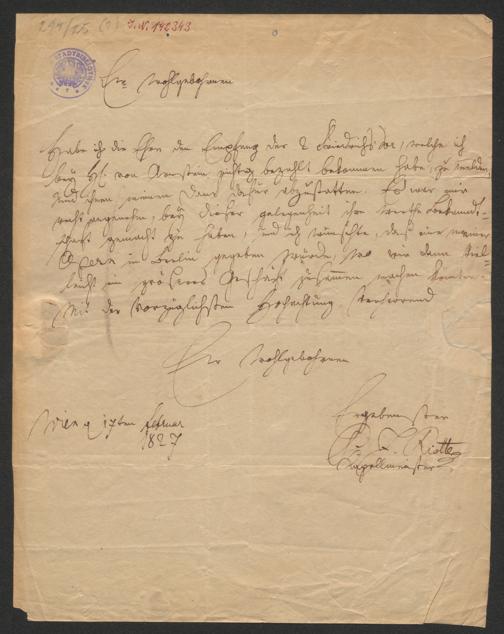 294/25
J.N. 142343
STADTBIBLIOTHEK
Euer Wohlgebohren
Habe ich die Ehre den Empfang der 2 Friedrichs d'or, welche ich
bey H: von richtig bezahlt bekommen habe, zu melden,
und ihnen meinen Dank dafür abzustatten. Es war mir
recht angenehm, bey dieser gelegenheit ihre werthe Bekannt-
schaft gemacht zu haben, und ich wünschte, daß eine meiner
Opern in Berlin gegeben würde, wo wir dann viel-
leicht ein größeres Geschäft zusammen machen könnten.
Mit der vorzüglichsten Hochachtung verharrend
Euer Wohlgebohren
Wien 17ten Februar
1827
Ergebenster
P. J. Riotte
Kapellmeister